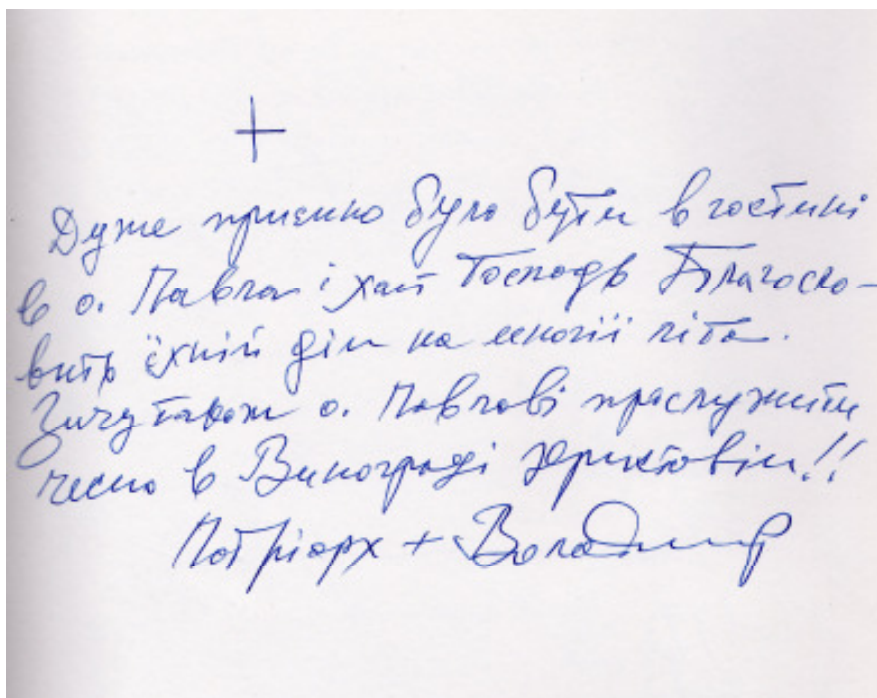 +
Дуже приємно було бути в гостині
в о. Павла і хай Господь Благосло-
вить їхній дім на многії літа.
Зичу також о. Павлові прослужити
чесно в Винограді Христовім!!
Патріарх + Володимир